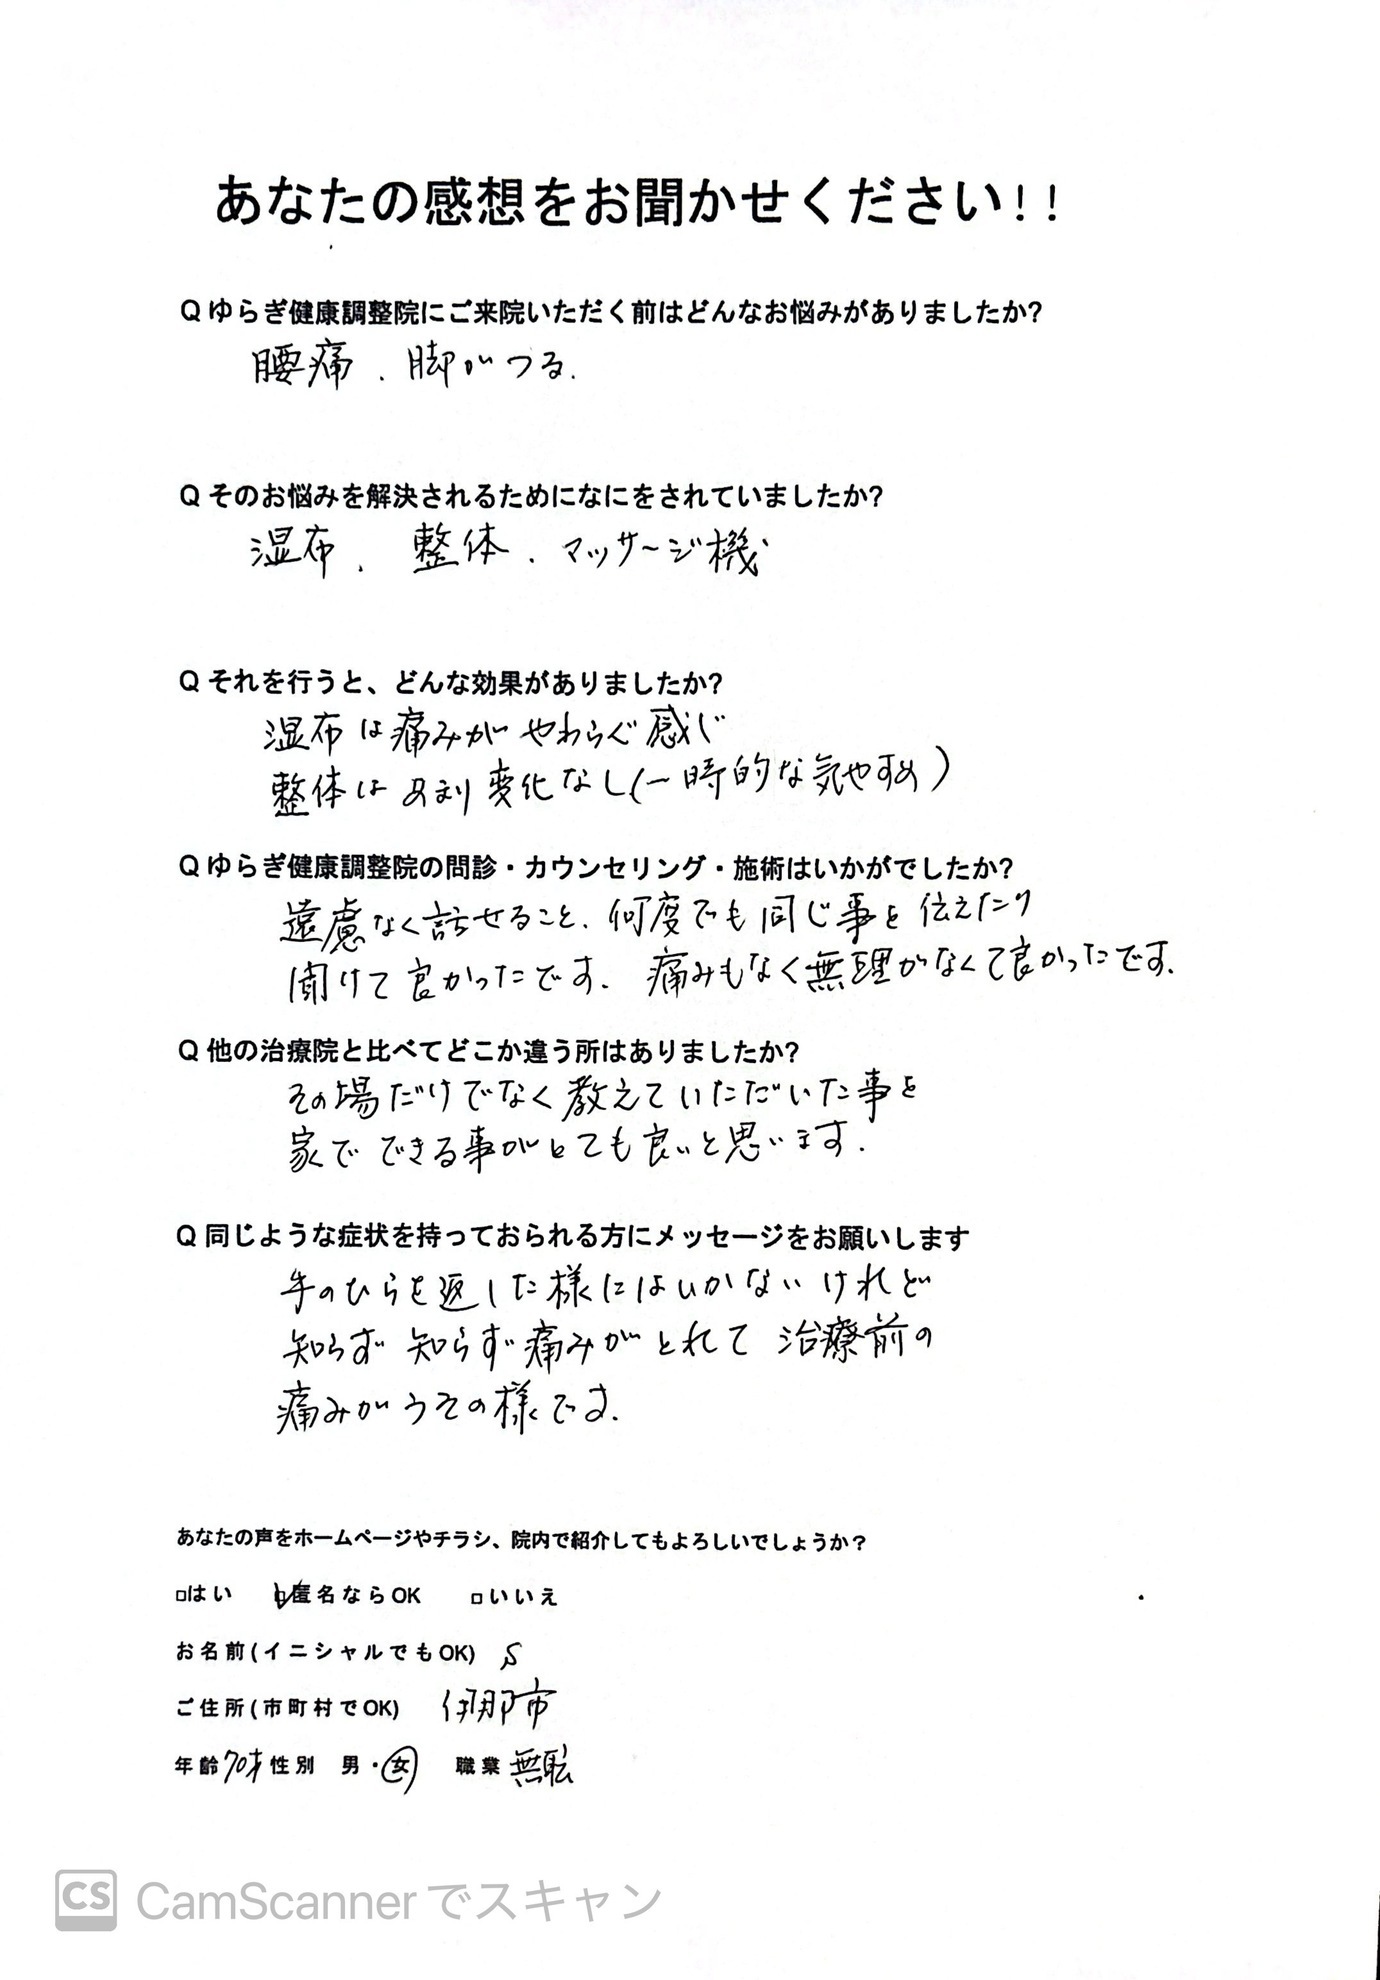 あなたの感想をお聞かせください!!
Q ゆらぎ健康調整院にご来院いただく前はどんなお悩みがありましたか?
腰痛、脚がつる。
Q そのお悩みを解決されるためになにをされていましたか?
湿布、整体、マッサージ機
Q それを行うと、どんな効果がありましたか?
湿布は痛みがやわらぐ感じ
整体はあまり変化なし(一時的な気やすめ)
Q ゆらぎ健康調整院の問診・カウンセリング・施術はいかがでしたか?
遠慮なく話せること、何度でも同じ事を伝えたり
聞けて良かったです。痛みもなく無理がなくて良かったです。
Q 他の治療院と比べてどこか違う所はありましたか?
その場だけでなく教えていただいた事を
家でできる事がとても良いと思います。
Q 同じような症状を持っておられる方にメッセージをお願いします
手のひらを返した様にはいかないけれど
知らず知らず痛みがとれて治療前の
痛みがうその様です。
あなたの声をホームページやチラシ、院内で紹介してもよろしいでしょうか?
□はい ☑匿名ならOK □いいえ
お名前(イニシャルでもOK) S
ご住所(市町村でOK) 伊那市
年齢70才 性別 男・女 職業 無職
CS CamScannerでスキャン